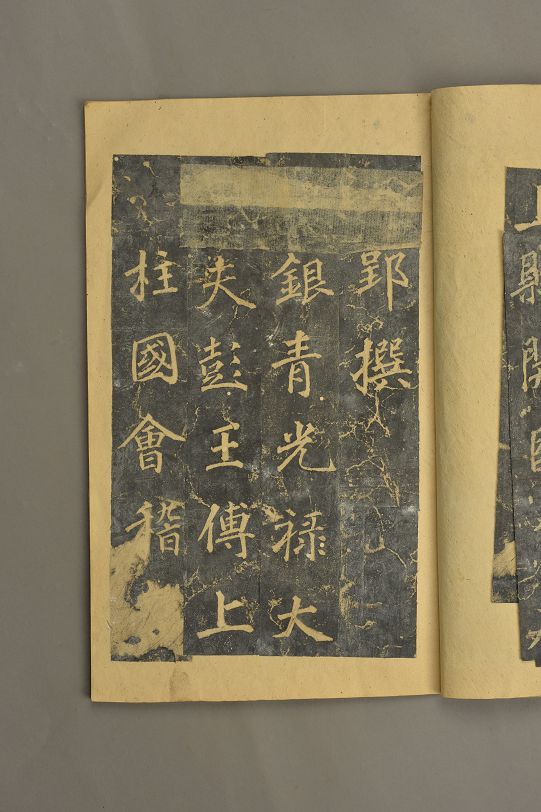 郢撰
銀青光祿大
夫彭王傅上
柱國會稽